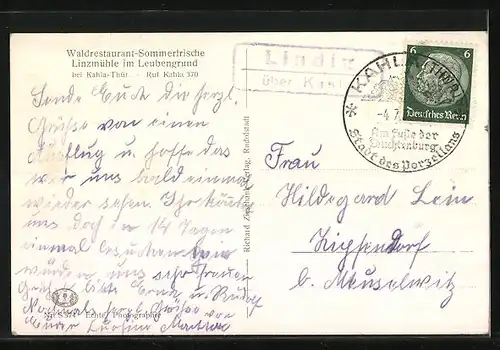 Waldrestaurant-Sommerfrische
Linzmühle im Leubengrund
bei Kahla-Thür. · Ruf Kahla 370
Sende Euch die herzl.
Grüße von einen
Ausflug u. hoffe das
wir uns bald einmal
wieder sehen. Ihr könnt
uns doch in 14 Tagen
einmal besuchen wir
würden uns sehr freuen
u. Rudolf
Nochmals herzl. Grüße von
Echte Photographie
Richard Zieschank, Verlag, Rudolstadt
Lindig
über Kahla
KAHLA (THÜR)
-4.7.
Am Fuße der
Leuchtenburg
Stadt des Porzellans
6 6
Deutsches Reich
Frau
Hildegard Lein
b. Meuselwitz